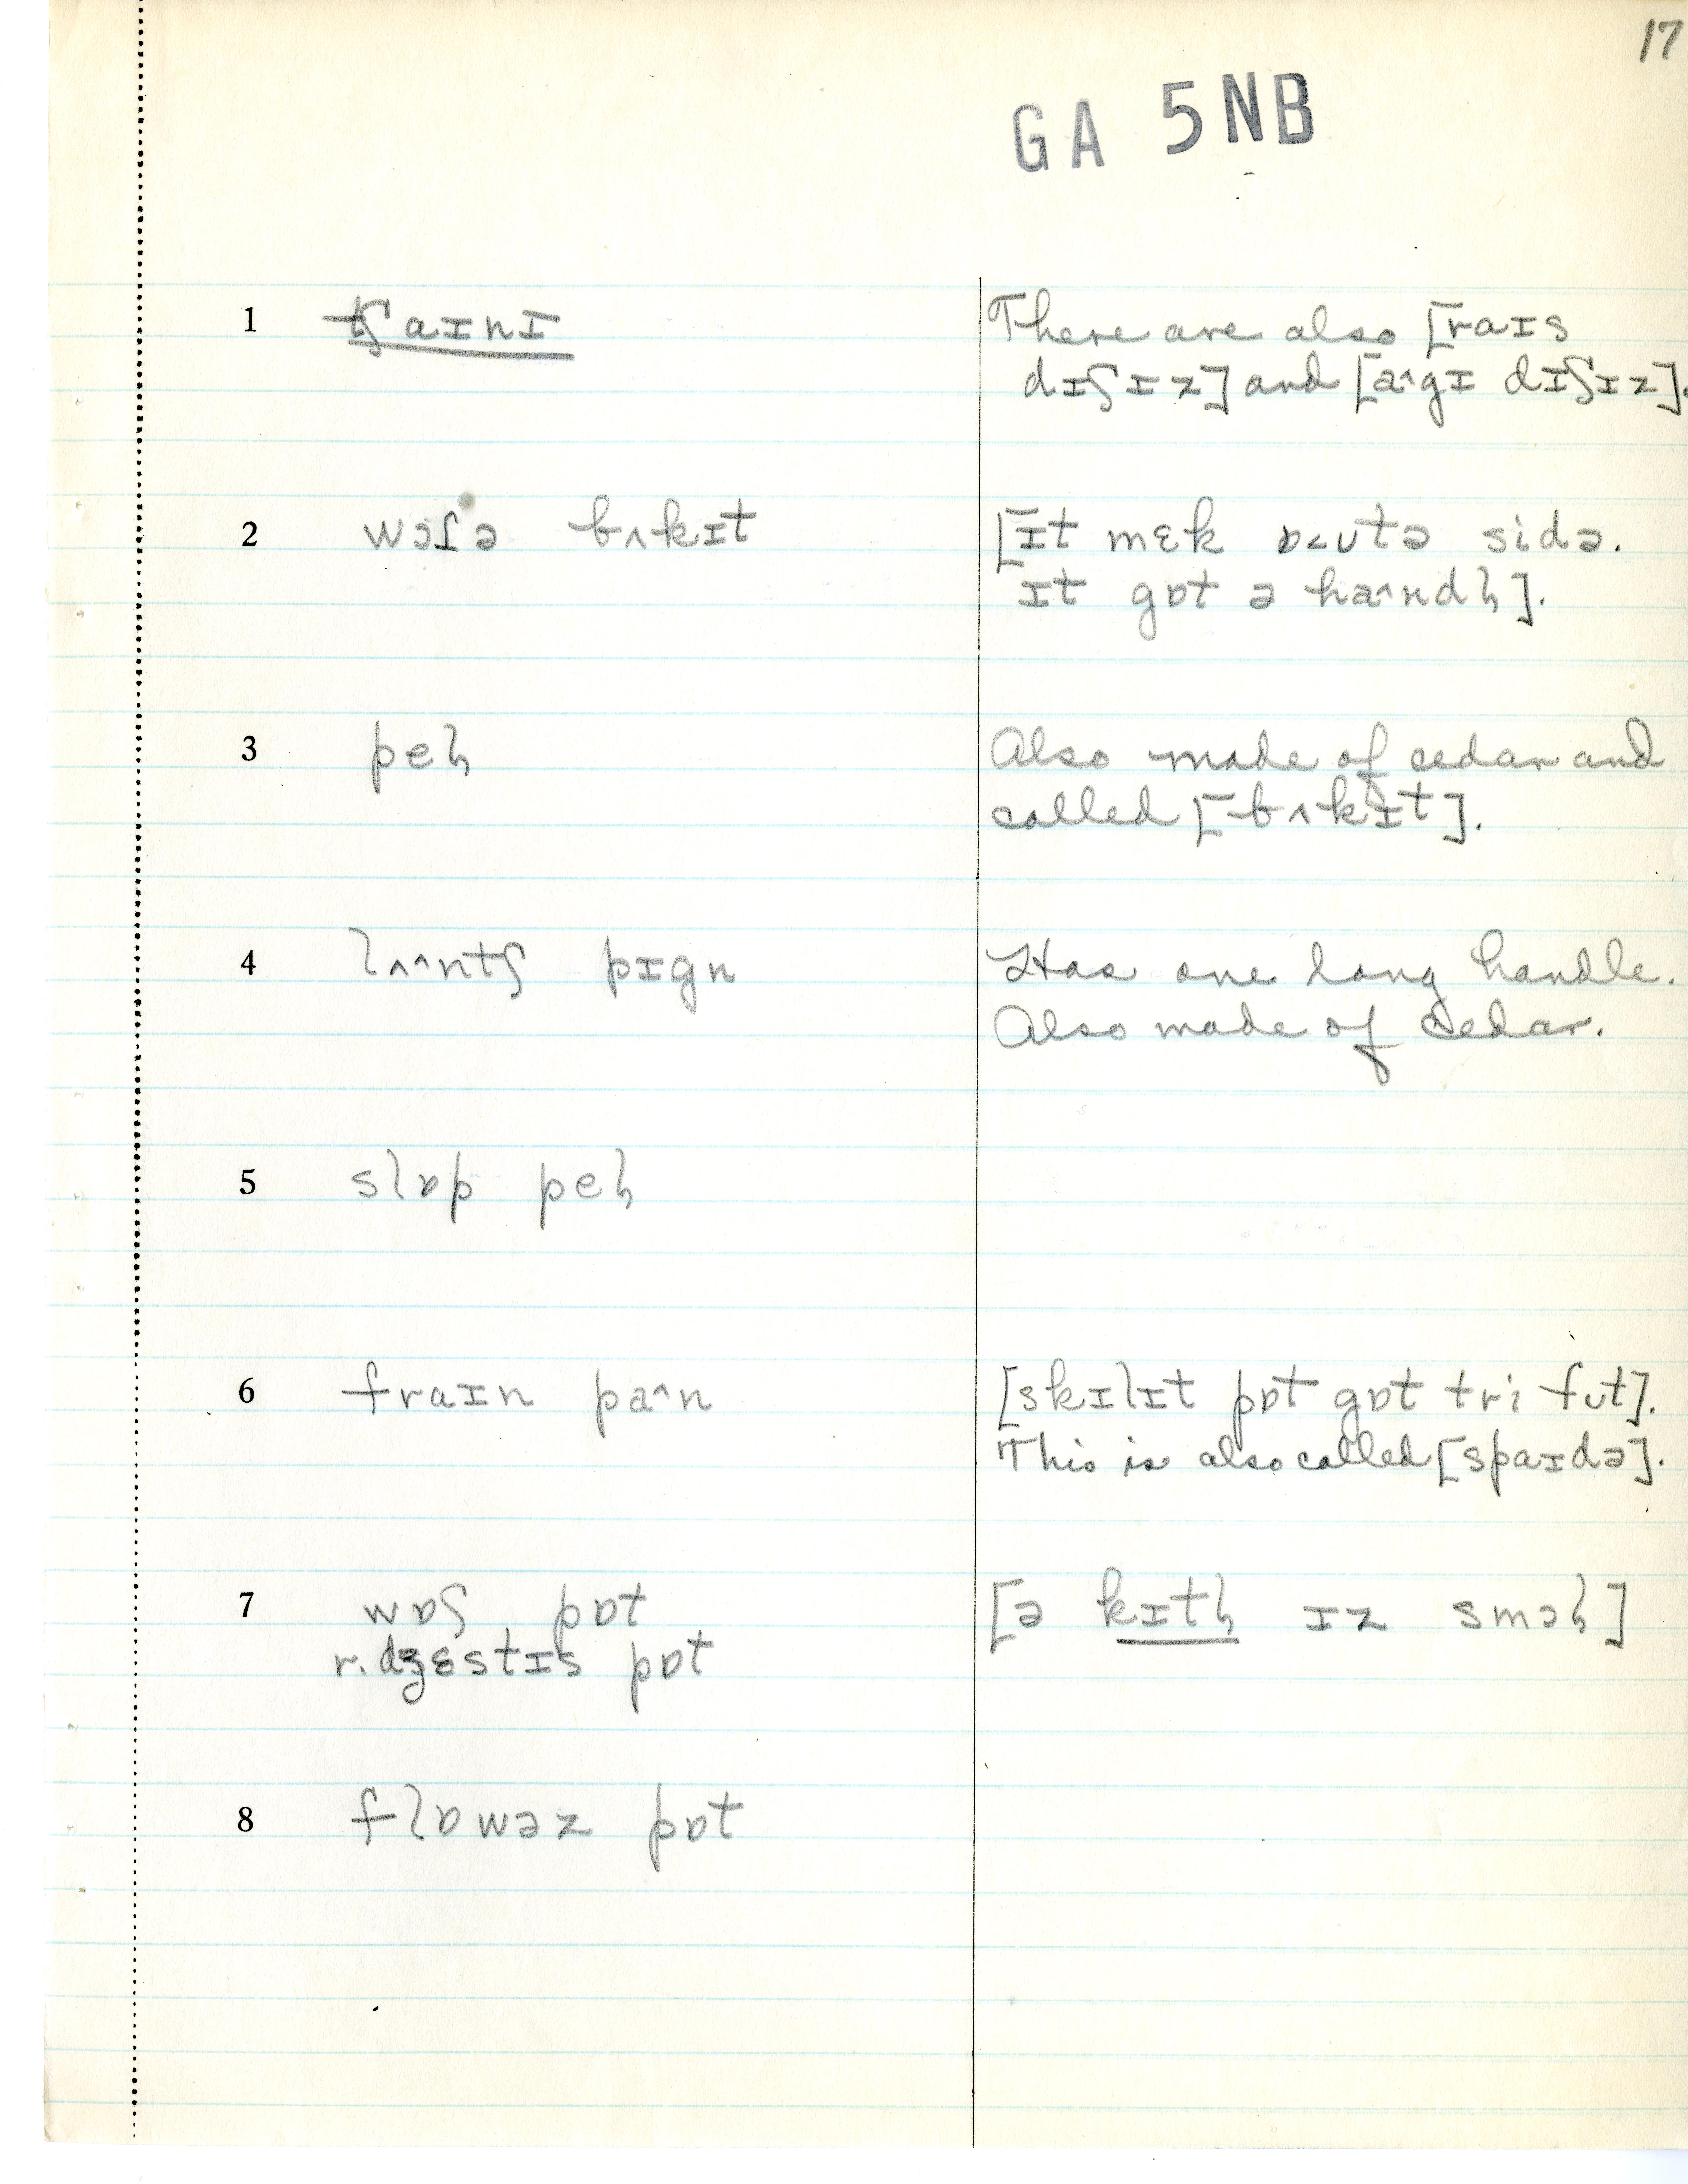 17
GA 5NB
1 tʃaɪnɪ
There are also [raɪs
dɪʃɪz] and [a^gɪ dɪʃɪz].
2 wɔʃə bʌkɪt
[ɪt mɛk ɒ<ʊtə sidə.
ɪt gɒt ə ha^ndɫ̩].
3 peɫ
Also made of cedar and
called [bʌkɪt].
4 lʌ^ntʃ pɪgn
Has one long handle.
Also made of cedar.
5 slɒp peɫ
6 fraɪn pa^n
[skɪlɪt pɒt gɒt tri fʊt].
This is also called [spaɪdə].
7 wɒʃ pɒt
[ə kɪtɫ ɪz smɔɫ]
r. dʒɛstɪs pɒt
8 flɒwəz pɒt